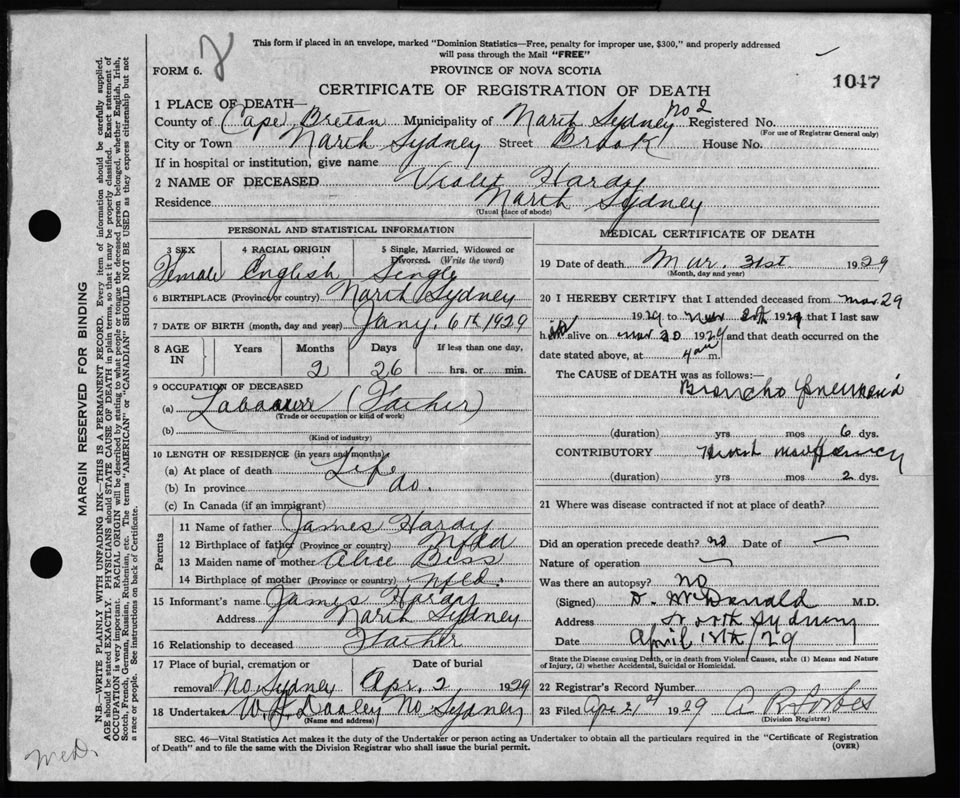 This form if placed in an envelope, marked "Dominion Statistics—Free, penalty for improper use, $300," and properly addressed
will pass through the Mail "FREE"
FORM 6.
PROVINCE OF NOVA SCOTIA
1047
CERTIFICATE OF REGISTRATION OF DEATH
1 PLACE OF DEATH—
County of Cape Breton Municipality of North Sydney No 2 Registered No.
(For use of Registrar General only)
City or Town North Sydney Street Brook House No.
If in hospital or institution, give name
2 NAME OF DECEASED Violet Hardy
Residence North Sydney
(Usual place of abode)
PERSONAL AND STATISTICAL INFORMATION
3 SEX 4 RACIAL ORIGIN 5 Single, Married, Widowed or Divorced. (Write the word)
Female English Single
6 BIRTHPLACE (Province or country) North Sydney
7 DATE OF BIRTH (month, day and year) Jany. 6th 1929
8 AGE IN Years Months Days If less than one day,
2 26 hrs. or min.
9 OCCUPATION OF DECEASED
(a) Labourer (Father)
(Trade or occupation or kind of work)
(b)
(Kind of industry)
10 LENGTH OF RESIDENCE (in years and months)
(a) At place of death Life
(b) In province do.
(c) In Canada (if an immigrant)
Parents
11 Name of father James Hardy
12 Birthplace of father (Province or country) Nfld
13 Maiden name of mother Alice Bess
14 Birthplace of mother (Province or country) Nfld.
15 Informant's name James Hardy
Address North Sydney
16 Relationship to deceased Father
17 Place of burial, cremation or removal No Sydney Date of burial Apr. 2 1929
18 Undertaker W. H. Dooley No Sydney
(Name and address)
MEDICAL CERTIFICATE OF DEATH
19 Date of death Mar. 31st 1929
(Month, day and year)
20 I HEREBY CERTIFY that I attended deceased from Mar 29
1929 to 1929 that I last saw
h alive on Mar 30 1929 and that death occurred on the
date stated above, at 4 am m.
The CAUSE of DEATH was as follows:—
Broncho Pneumonia
(duration) yrs mos 6 dys.
CONTRIBUTORY Heart Insufficiency
(duration) yrs mos 2 dys.
21 Where was disease contracted if not at place of death?
Did an operation precede death? no Date of —
Nature of operation —
Was there an autopsy? no
(Signed) D. McDonald M.D.
Address North Sydney
Date April 18th/29
State the Disease causing Death, or in death from Violent Causes, state (1) Means and Nature
of Injury, (2) whether Accidental, Suicidal or Homicidal.
22 Registrar's Record Number
23 Filed Apr 21st 1929 A R Forbes
(Division Registrar)
SEC. 46—Vital Statistics Act makes it the duty of the Undertaker or person acting as Undertaker to obtain all the particulars required in the "Certificate of Registration
of Death" and to file the same with the Division Registrar who shall issue the burial permit.
(OVER)
MARGIN RESERVED FOR BINDING
N.B.—WRITE PLAINLY WITH UNFADING INK—THIS IS A PERMANENT RECORD. Every item of information should be carefully supplied.
AGE should be stated EXACTLY. PHYSICIANS should STATE CAUSE OF DEATH in plain terms so that it may be properly classified. Exact statement of
OCCUPATION is very important. RACIAL ORIGIN will be described by stating to what people or tongue the deceased person belonged, whether English, Irish,
Scotch, French, German, Russian, Ruthenian, etc. The terms "AMERICAN" or "CANADIAN" SHOULD NOT BE USED as they express citizenship but not
a race or people. See instructions on back of Certificate.